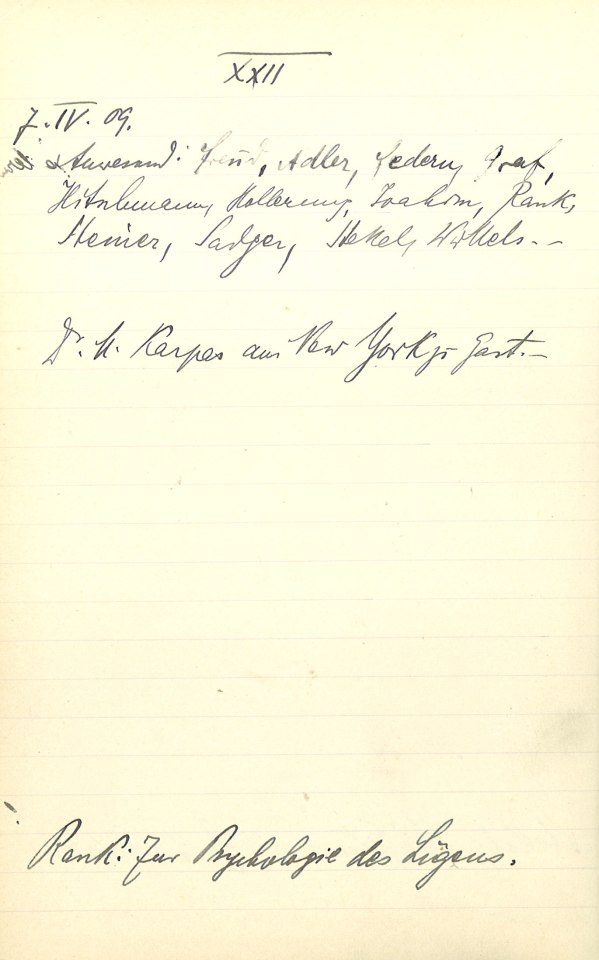 XXII
7. IV. 09.
Anwesend: Freud, Adler, Federn, Graf,
Hitschmann, Hollerung, Joachim, Rank,
Steiner, Sadger, Stekel, Wittels. –
Dr. M. Karpas aus New York als Gast. –
Rank: Zur Psychologie des Lügens.